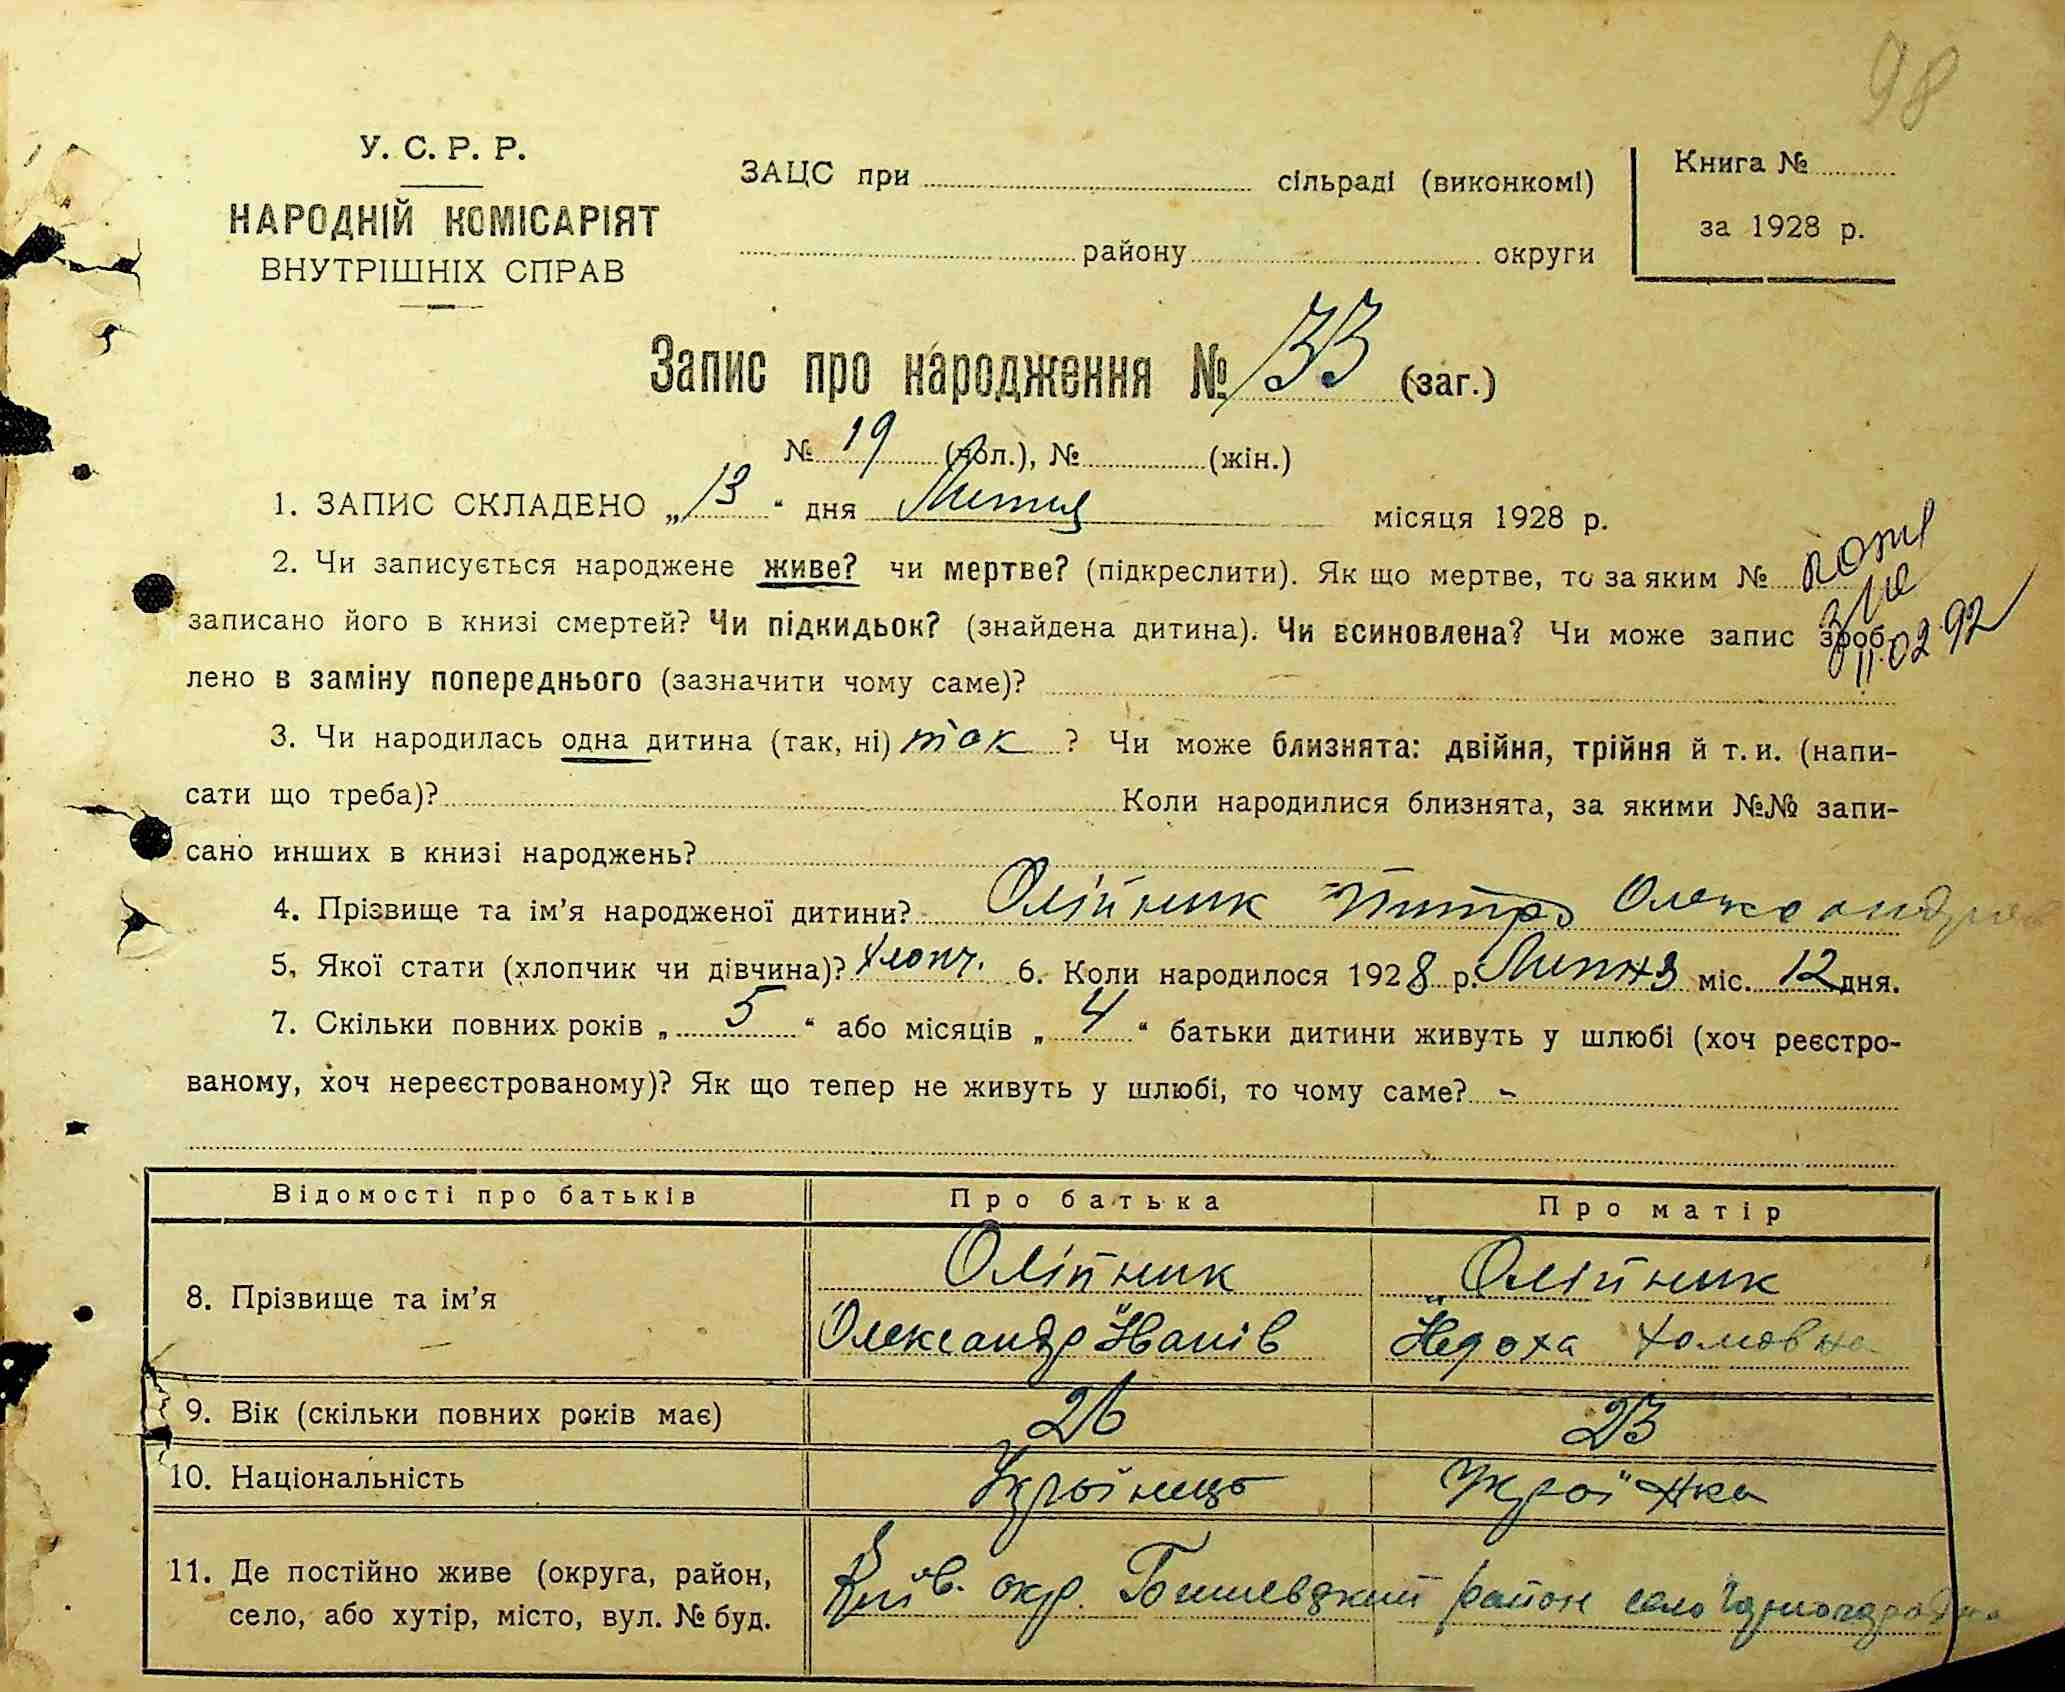 98
У. С. Р. Р.
НАРОДНІЙ КОМІСАРІЯТ
ВНУТРІШНІХ СПРАВ
ЗАЦС при сільраді (виконкомі)
району округи
Книга №
за 1928 р.
Запис про народження № 33 (заг.)
№ 19 (чол.), № (жін.)
1. ЗАПИС СКЛАДЕНО „13“ дня Липня місяця 1928 р.
2. Чи записується народжене живе? чи мертве? (підкреслити). Як що мертве, то за яким №
записано його в книзі смертей? Чи підкидьок? (знайдена дитина). Чи всиновлена? Чи може запис зроб-
11.02.92
лено в заміну попереднього (зазначити чому саме)?
3. Чи народилась одна дитина (так, ні) так ? Чи може близнята: двійня, трійня й т. и. (напи-
сати що треба)? Коли народилися близнята, за якими №№ запи-
сано инших в книзі народжень?
4. Прізвище та ім’я народженої дитини? Олійник Олександров
5. Якої стати (хлопчик чи дівчина)? хлопч. 6. Коли народилося 1928 р. Липня міс. 12 дня.
7. Скільки повних років „ 5 “ або місяців „ 4 “ батьки дитини живуть у шлюбі (хоч реєстро-
ваному, хоч нереєстрованому)? Як що тепер не живуть у шлюбі, то чому саме? -
Відомості про батьків Про батька Про матір
8. Прізвище та ім’я Олійник Олійник
Олександр Іванів Хомовна
9. Вік (скільки повних років має) 26 23
10. Національність Українець Українка
11. Де постійно живе (округа, район,
село, або хутір, місто, вул. № буд.
Київ. окр. район село